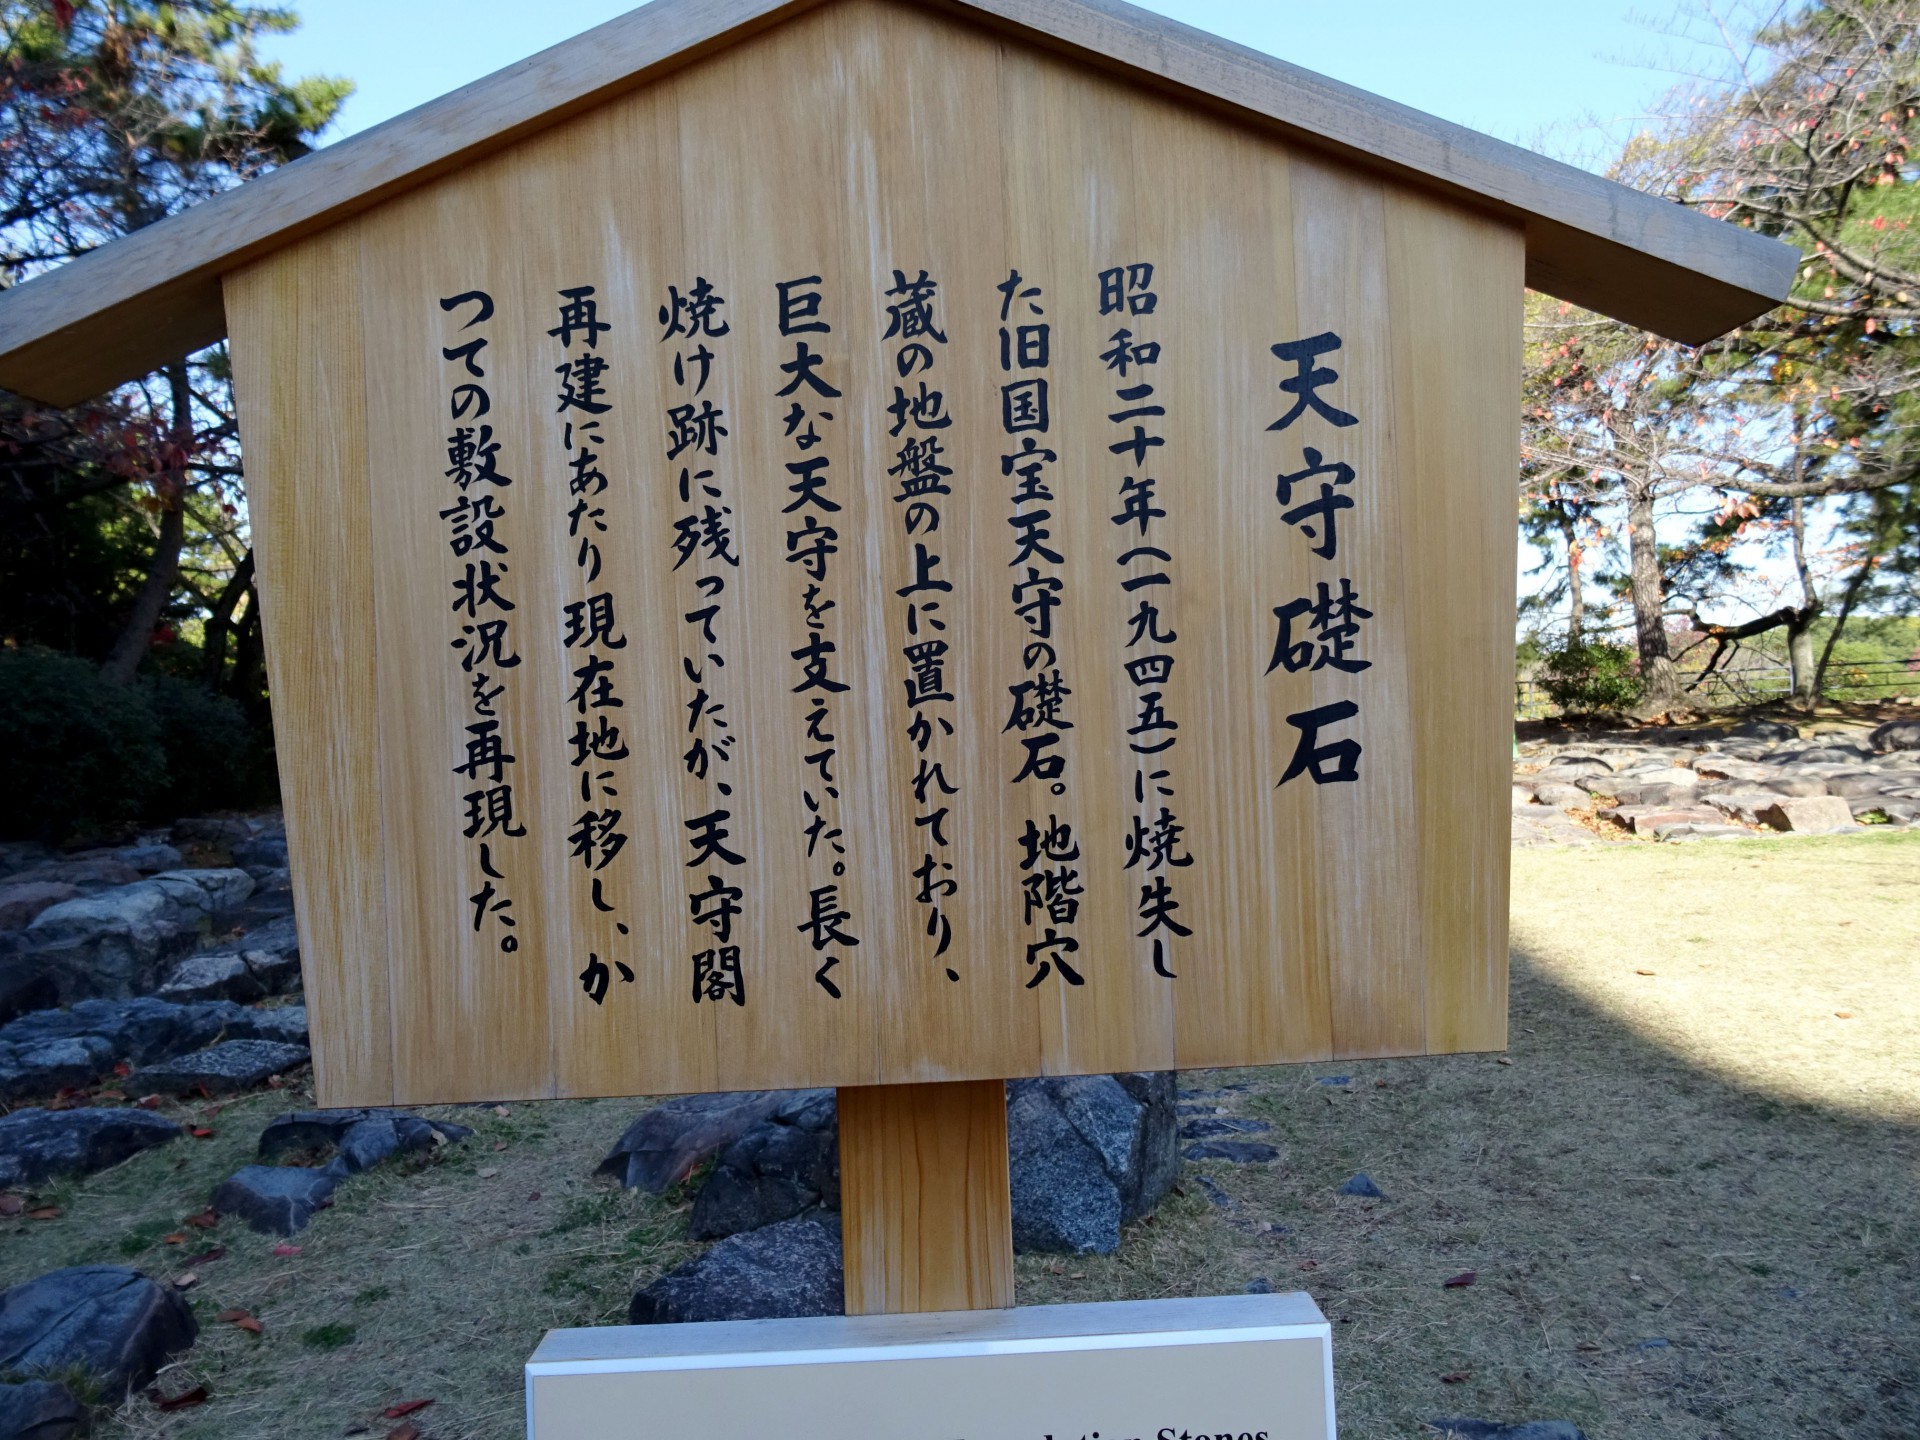 天守礎石
昭和二十年(一九四五)に焼失し
た旧国宝天守の礎石。地階穴
蔵の地盤の上に置かれており、
巨大な天守を支えていた。長く
焼け跡に残っていたが、天守閣
再建にあたり現在地に移し、か
つての敷設状況を再現した。
Stones